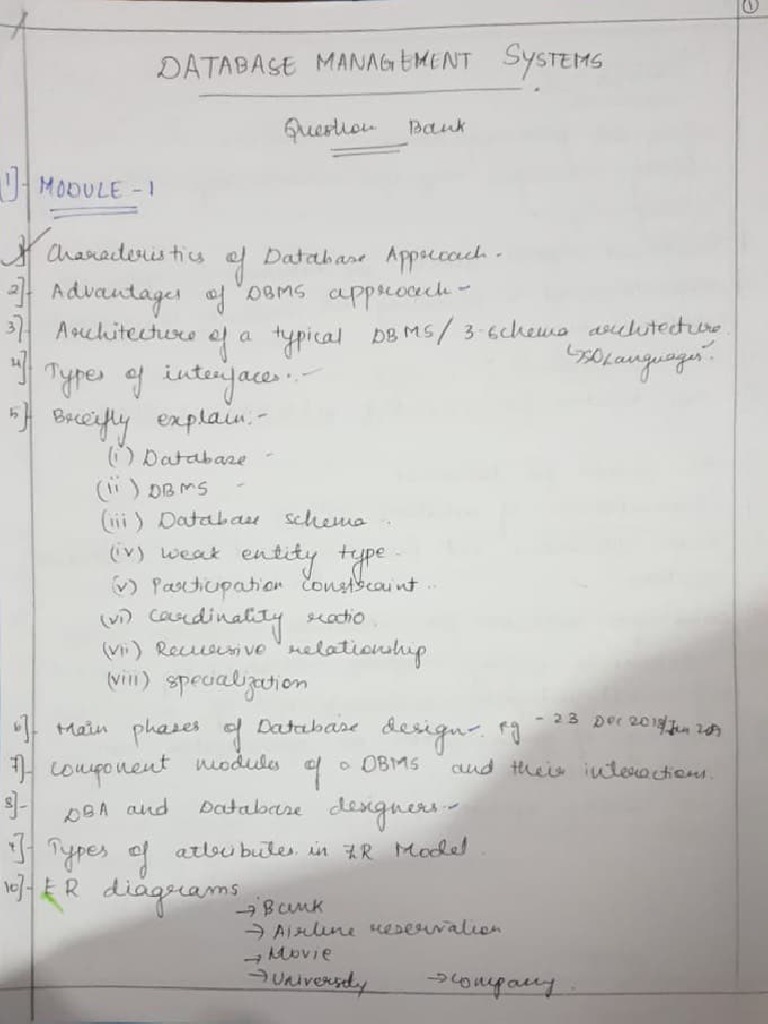 1
DATABASE MANAGEMENT SYSTEMS
Question Bank
1] MODULE - 1
1] Characteristics of Database Approach.
2] Advantages of DBMS approach -
3] Architecture of a typical DBMS / 3-schema architecture.
Languages.
4] Types of interfaces. -
5] Breifly explain: -
(i) Database -
(ii) DBMS -
(iii) Database schema.
(iv) weak entity type.
(v) Participation constraint..
(vi) cardinality ratio.
(vii) Recursive relationship
(viii) specialization
6] Main phases of Database design -. pg - 23 Dec 2019/Jan
7] component modules of a DBMS and their interactions.
8] - DBA and Database designers -
9] Types of attributes in ER Model.
10] - ER diagrams
→ Bank
→ Airline reservation
→ Movie
→ University → company.